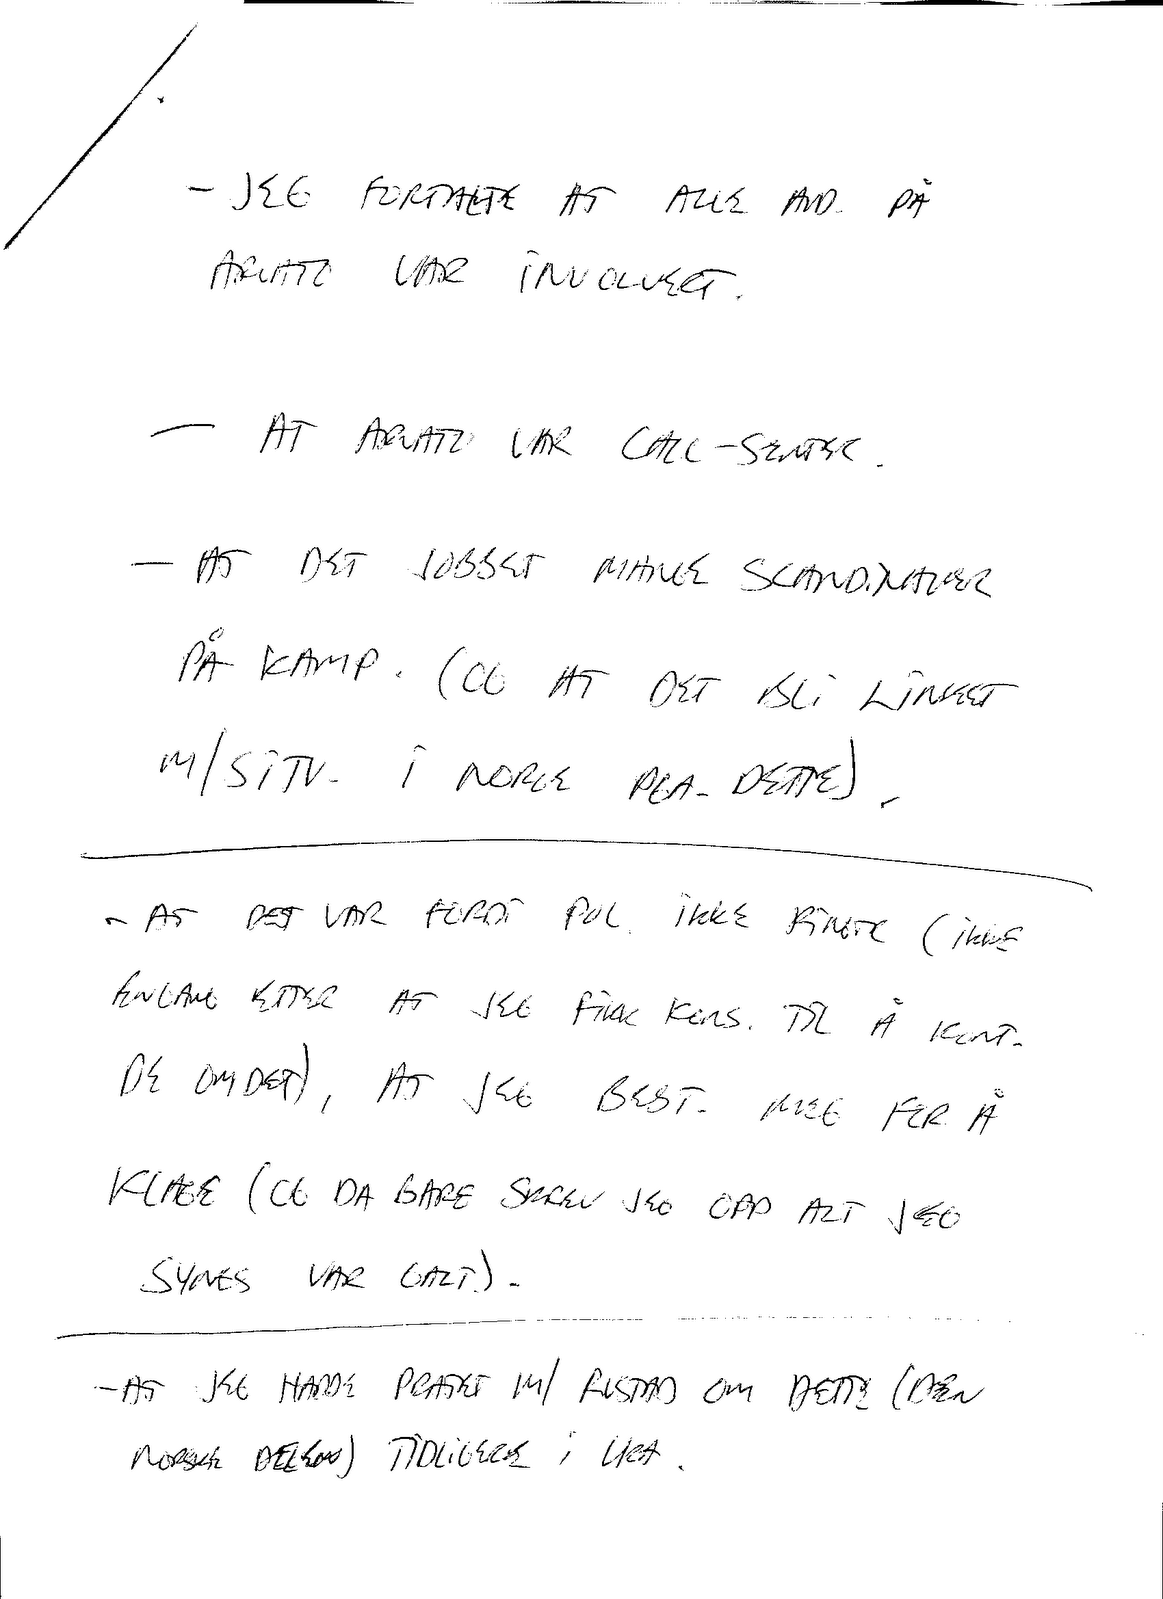 - JEG FORTALTE AT ALLE AVD. PÅ
ARVATO VAR INVOLVERT.
- AT ARVATO VAR CALL-SENTER.
- AT DET JOBBET MANGE SCANDINAVER
PÅ KAMP. (OG AT DET BLI LINKET
M/SITU. I NORGE PGA. DETTE).
- AT DET VAR FORDI POL. IKKE RINGTE (IKKE
ENGANG ETTER AT JEG FIKK KONS. TIL Å KONT.
DE OM DET), AT JEG BEST. MEG FOR Å
KLAGE (OG DA BARE SKREV JEG OPP ALT JEG
SYNES VAR GALT.).
- AT JEG HADDE PRATET M/ RUSTAD OM DETTE (DEN
NORSKE DELEN) TIDLIGERE I UKA.